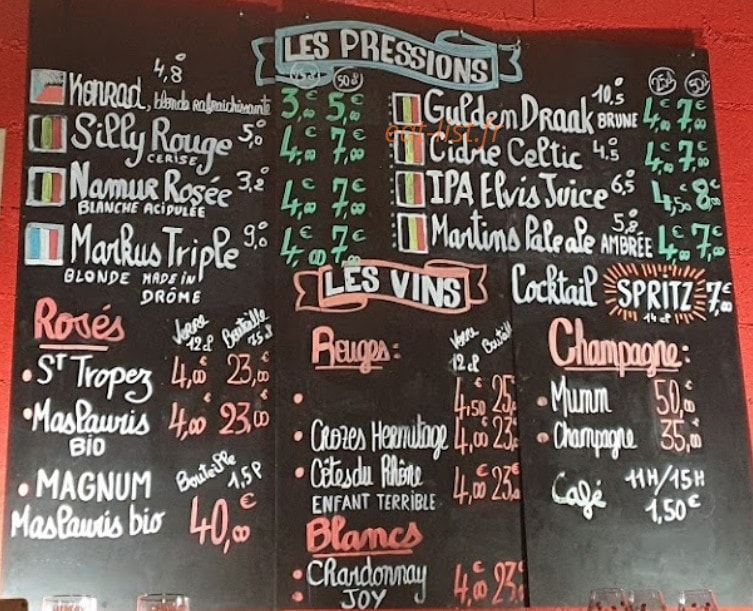 LES PRESSIONS
25cl 50cl
Konrad, blonde rafraichissante 4,8° 3,00€ 5,00€
Silly Rouge 5,0° 4,00€ 7,00€
CERISE
Namur Rosée 3,2° 4,00€ 7,00€
BLANCHE ACIDULÉE
Markus Triple 9,0° 4,00€ 7,00€
BLONDE MADE IN DRÔME
25cl 50cl
Gulden Draak BRUNE 10,5° 4,00€ 7,00€
eat-list.fr
Cidre Celtic 4,5° 4,00€ 7,00€
IPA Elvis Juice 6,5° 4,50€ 8,00€
Martins Pale ale AMBRÉE 5,8° 4,00€ 7,00€
Cocktail SPRITZ 7,00€
14 cl
LES VINS
Rosés
Verre 12cl Bouteille 75cl
• ST Tropez 4,00€ 23,00€
• Mas Lauris 4,00€ 23,00€
BIO
Bouteille 1,5l
• MAGNUM
Mas Lauris bio 40,00€
Rouges:
Verre 12cl Bouteill
• 4,50€ 25,
• Crozes Hermitage 4,00€ 23,
• Côtes du Rhône 4,00€ 23,
ENFANT TERRIBLE
Blancs
• Chardonnay 4,00€ 23
JOY
Champagne:
• Mumm 50,00€
• Champagne 35,00€
Café 11H/15H
1,50€